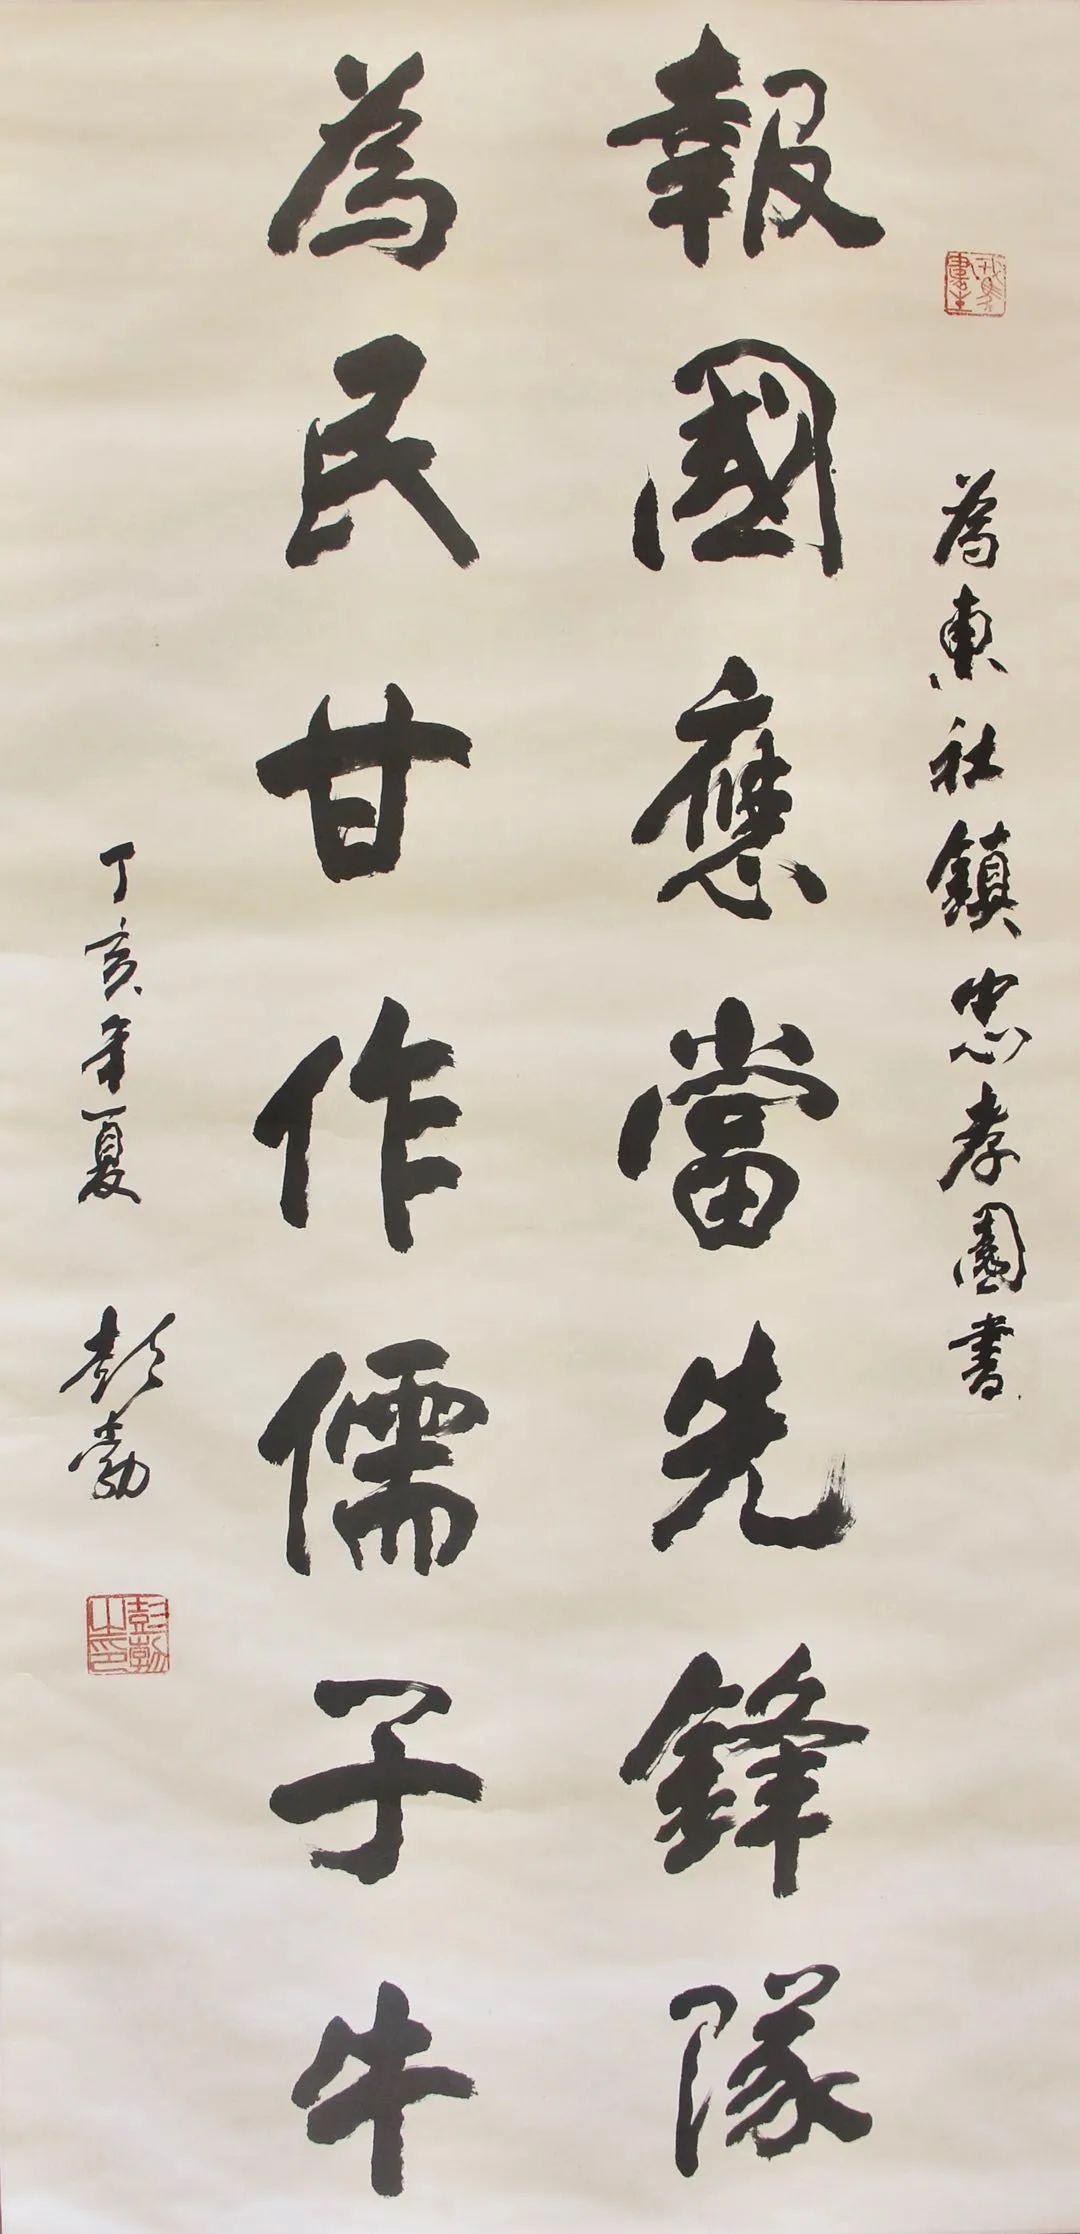 為東社鎮忠孝園書
報國應當先鋒隊
為民甘作儒子牛
丁亥年夏 彭勃
彭勃之印